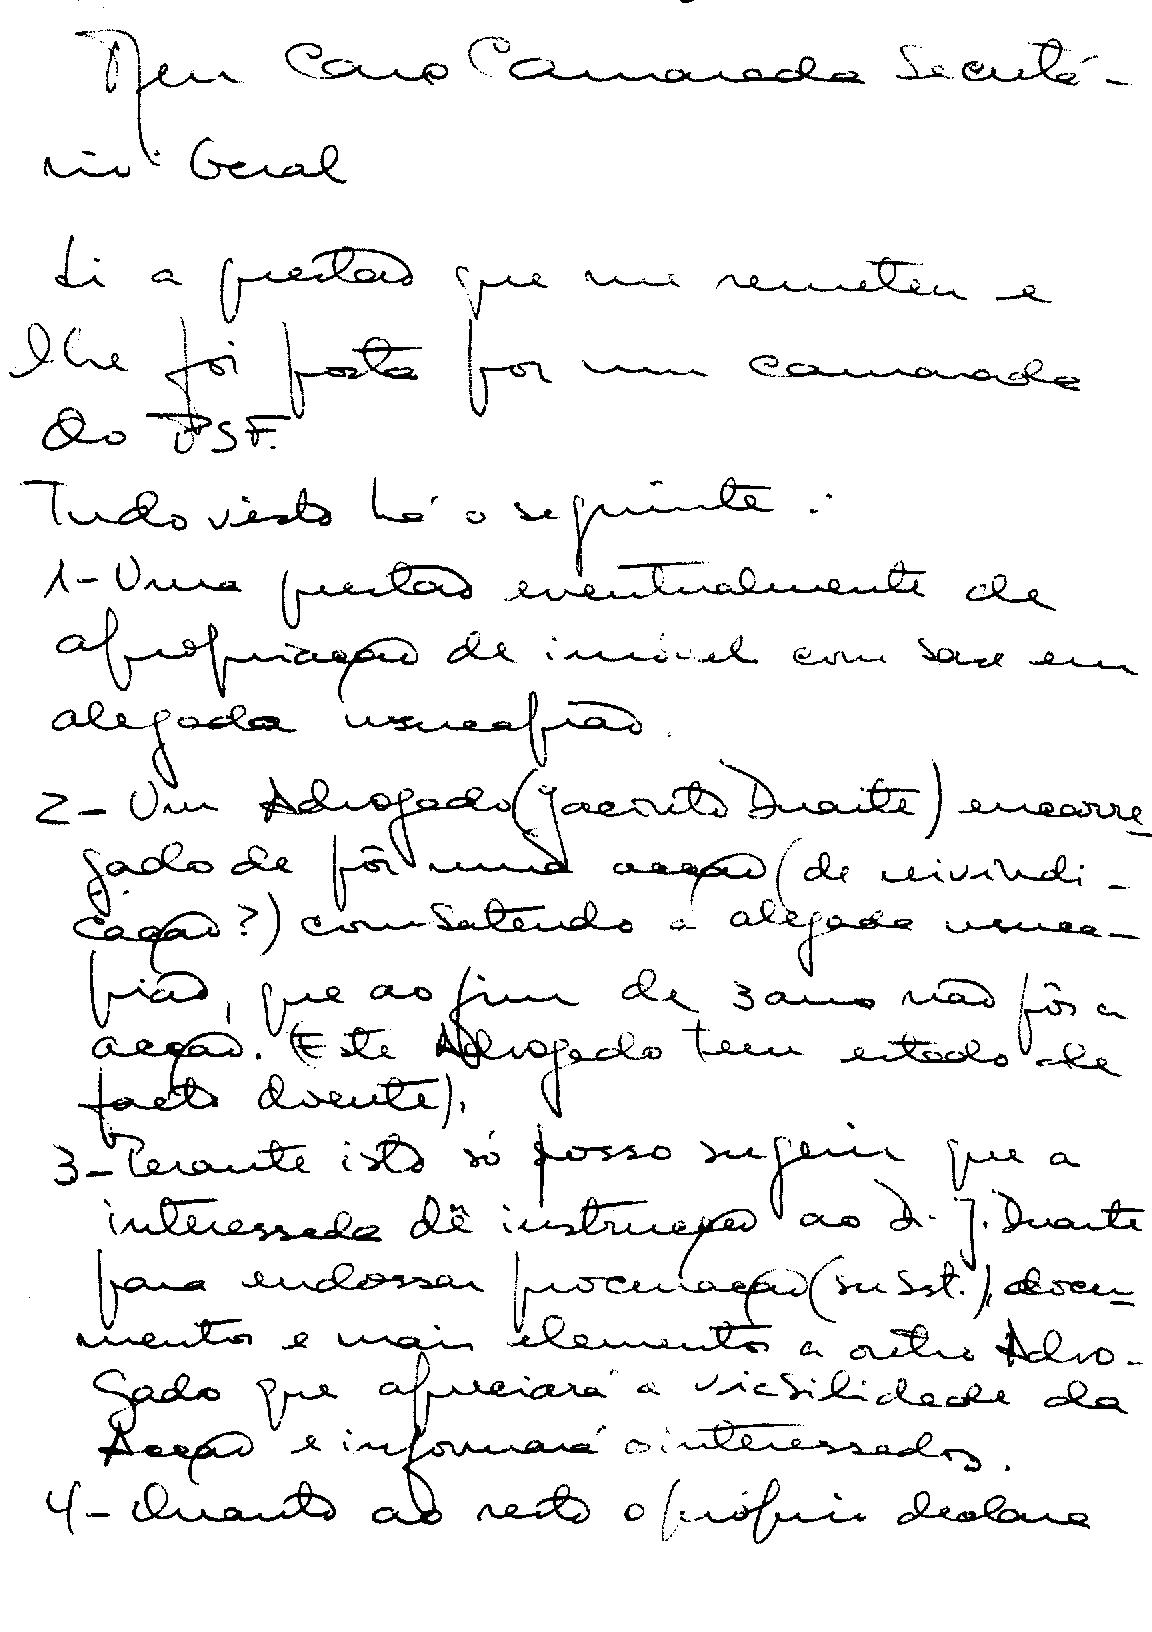 Meu Caro Camarada Secretá-
rio Geral
Li a questão que me remeteu e
lhe foi posta por um camarada
do PSF.
Tudo visto há o seguinte:
1- Uma questão eventualmente de
apropriação de imóvel com base em
alegada usucapião.
2- Um Advogado (Jacinto Duarte) encarre-
gado de pôr uma acção (de reivindi-
cação?) combatendo a alegada usuca-
pião, que ao fim de 3 anos não pôs a
acção. (Este Advogado tem estado de
facto doente).
3- Perante isto só posso sugerir que a
interessada dê instrução ao D. J. Duarte
para endossar procuração (subst.), docu-
mentos e mais elementos a outro Advo-
gado que apreciará a viabilidade da
Acção e informará o interessados.
4- Quanto ao resto o próprio declara